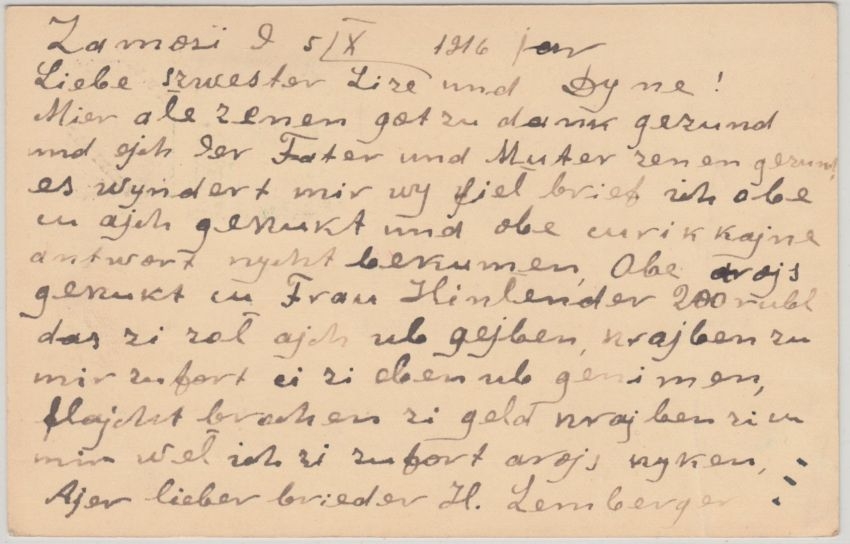 Zamosi d 5/IX 1916 jar
Liebe szwester Lize und Dyne!
Mier ale zenen gotzu dank gezund
und ojch der Fater und Muter zenen gezund
es wyndert mir wy fiel brief ich obe
cu ajch geszukt und obe curik kajne
antwort nycht bekumen, Obe arojs
geszukt cu Frau Hinlender 200 rubl
das zi zol ajch ub gejben, szrajben zu
mir zufort ci zi oben ub genimen,
flajcht brochen zi geld szrajben zi cu
mir wel ich zi zufort arojs szyken,
Ajer lieber brieder H. Lemberger